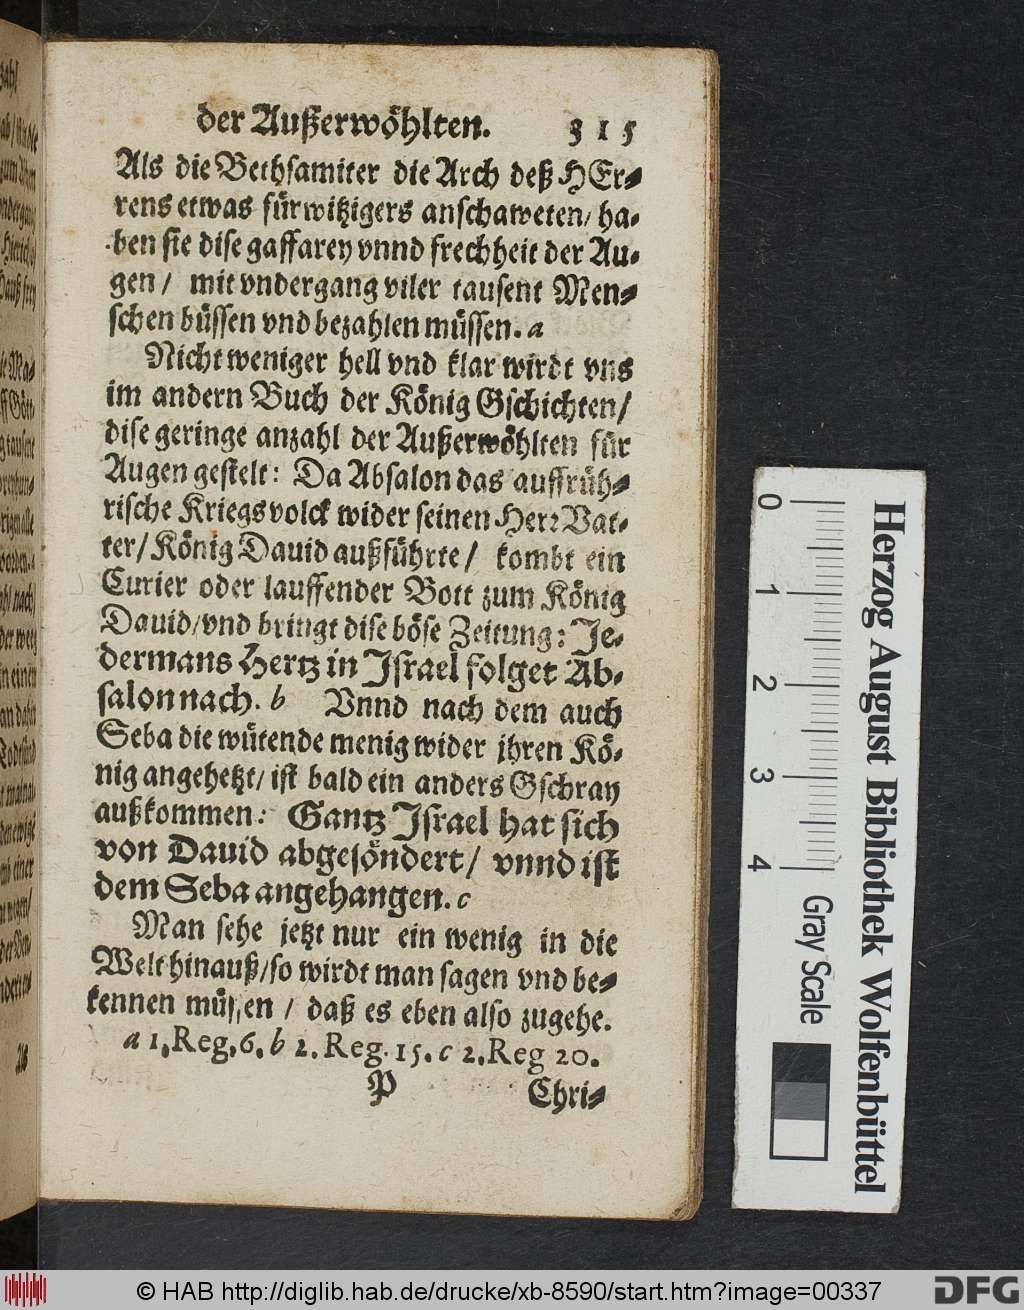 der Außerwöhlten. 315
Als die Bethsamiter die Arch deß HEr⸗
rens etwas fürwitzigers anschaweten/ ha⸗
ben sie dise gaffarey vnnd frechheit der Au⸗
gen / mit vndergang viler tausent Men⸗
schen büssen vnd bezahlen müssen. a
Nicht weniger hell vnd klar wirdt vns
im andern Buch der König Gschichten/
dise geringe anzahl der Außerwöhlten für
Augen gestelt: Da Absalon das auffrüh⸗
rische Kriegsvolck wider seinen Herr Vat⸗
ter/ König Dauid außführte / kombt ein
Curier oder lauffender Bott zum König
Dauid/ vnd bringt dise böse Zeitung: Je⸗
dermans Hertz in Israel folget Ab⸗
salon nach. b Vnnd nach dem auch
Seba die wütende menig wider jhren Kö⸗
nig angehetzt/ ist bald ein anders Gschray
außkommen: Gantz Israel hat sich
von Dauid abgesöndert/ vnnd ist
dem Seba angehangen. c
Man sehe jetzt nur ein wenig in die
Welt hinauß/ so wirdt man sagen vnd be⸗
kennen müssen / daß es eben also zugehe.
a 1. Reg. 6. b 2. Reg. 15. c 2. Reg 20.
P Chri⸗
0 1 2 3 4
Gray Scale
Herzog August Bibliothek Wolfenbüttel
© HAB http://diglib.hab.de/drucke/xb-8590/start.htm?image=00337
DFG